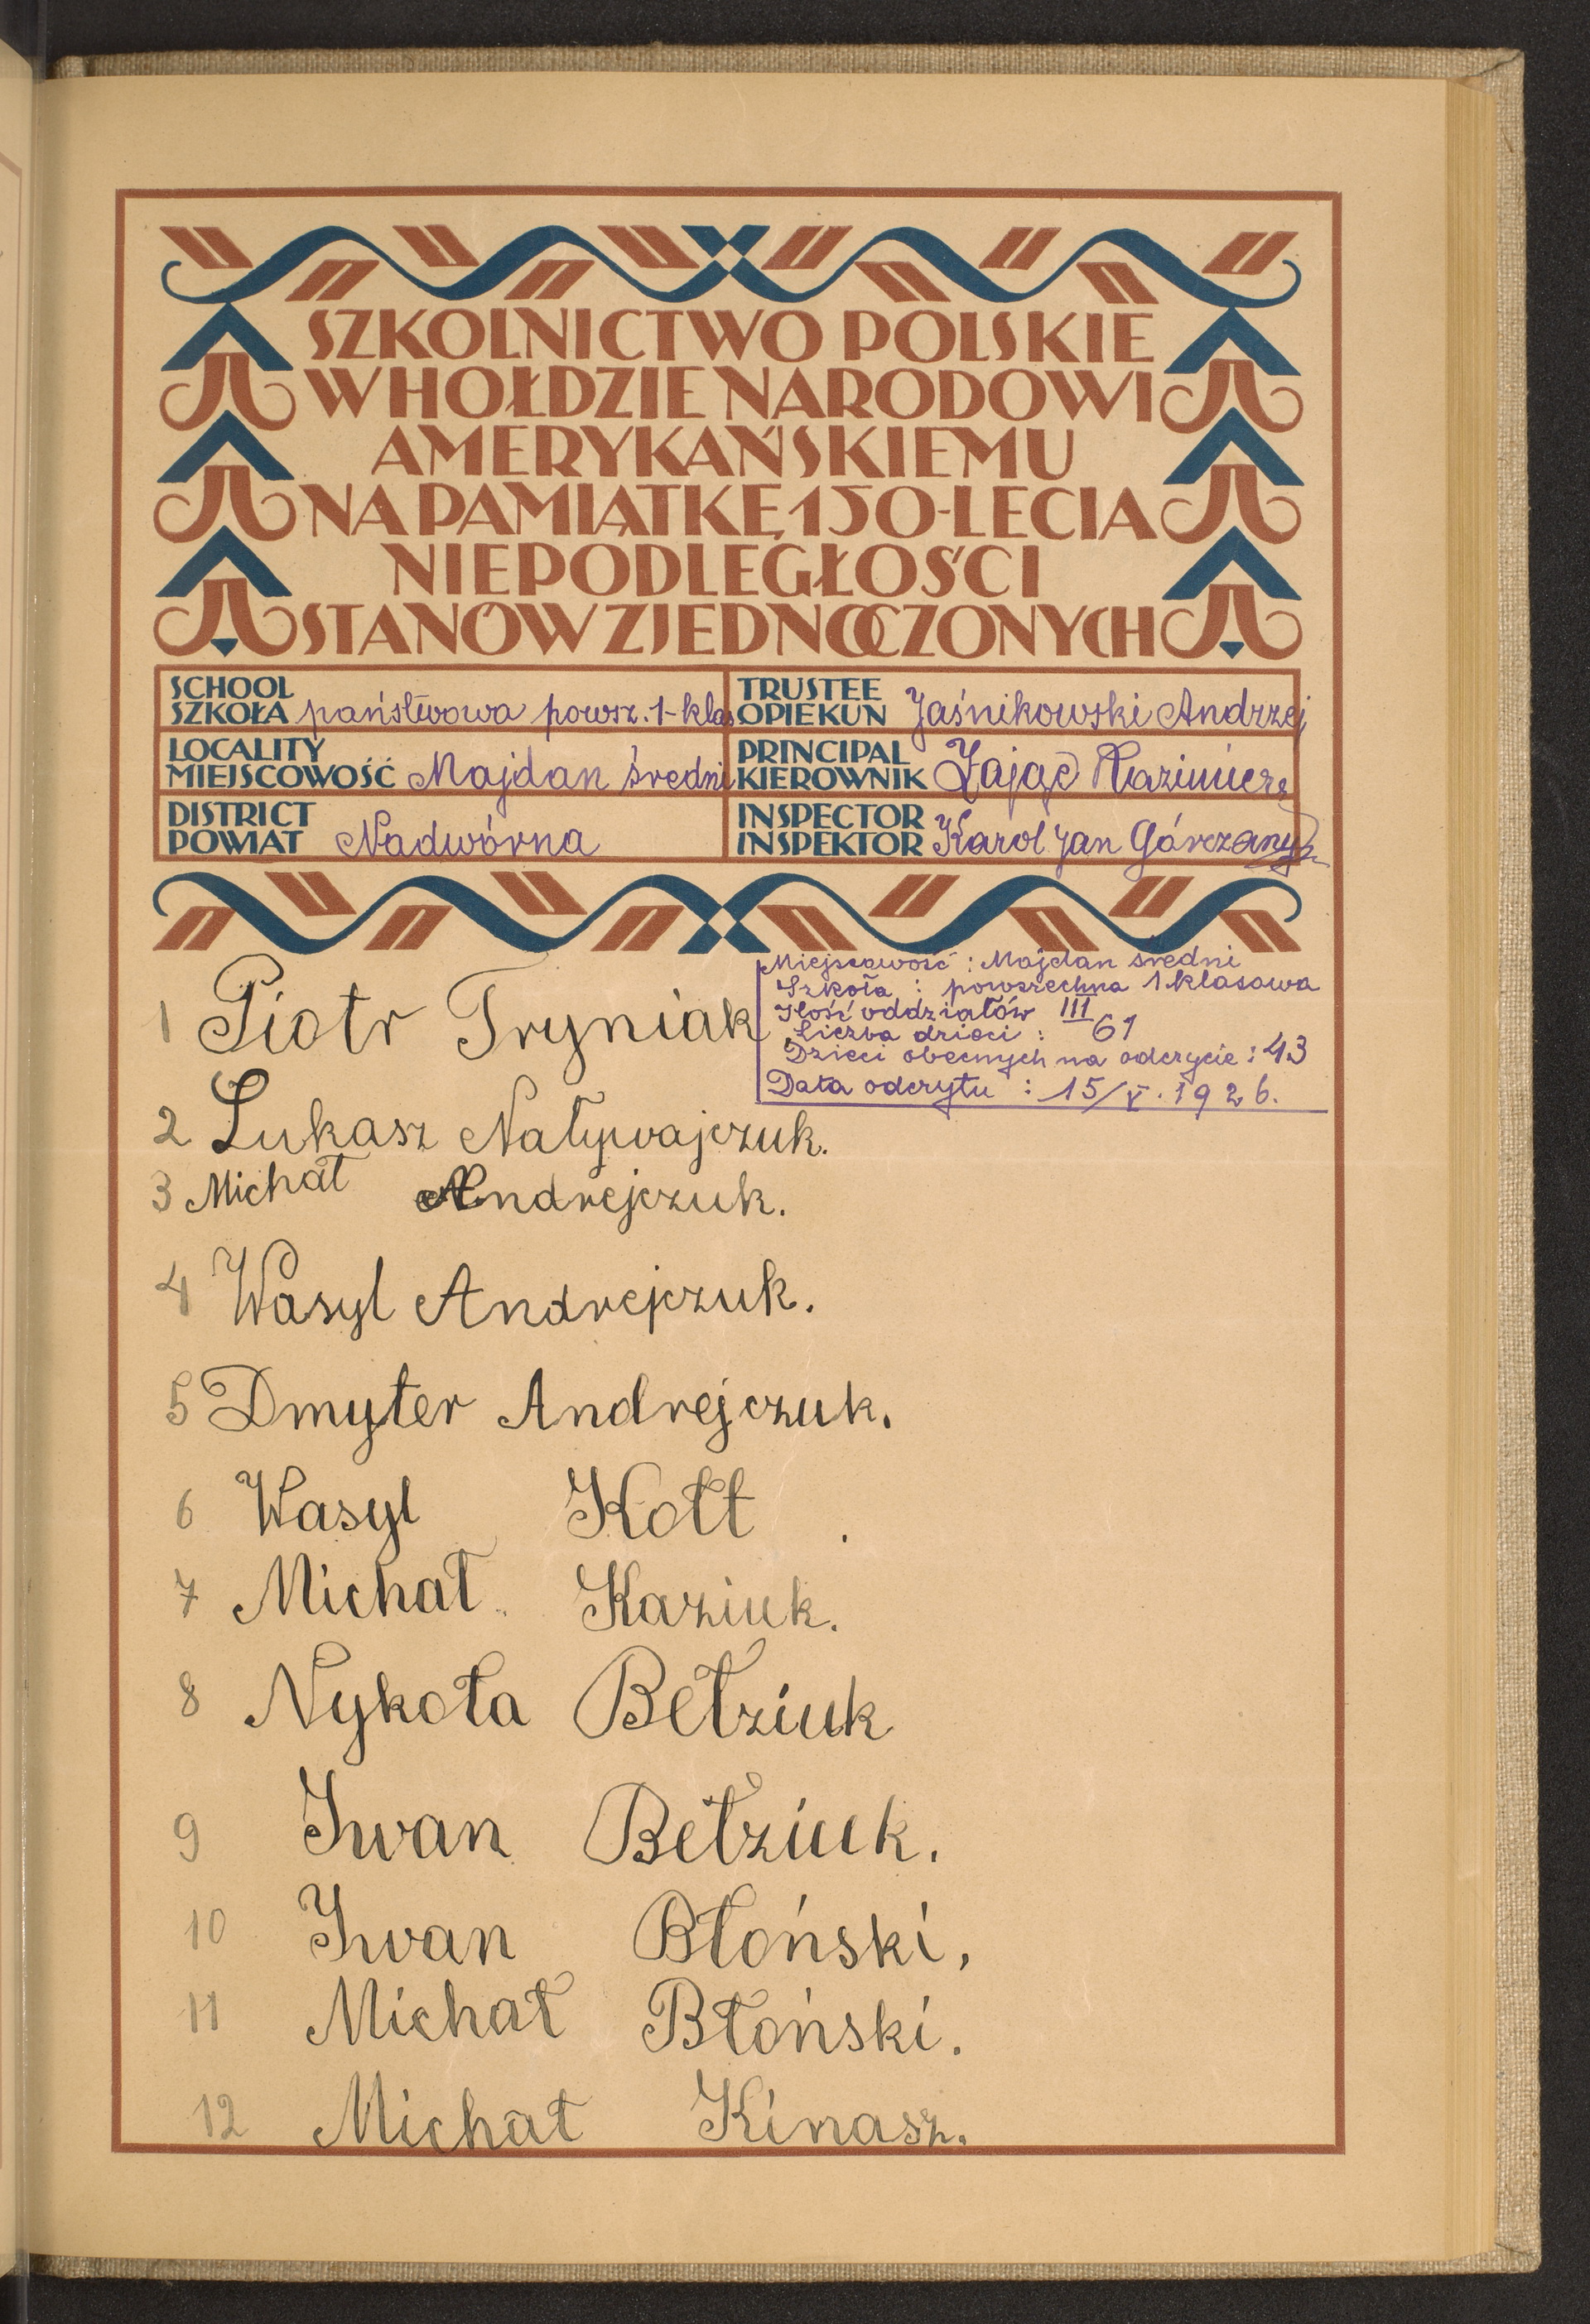 SZKOLNICTWO POLSKIE
W HOŁDZIE NARODOWI
AMERYKAŃSKIEMU
NA PAMIĄTKĘ 150-LECIA
NIEPODLEGŁOŚCI
STANÓW ZJEDNOCZONYCH
SCHOOL
SZKOŁA państwowa powsz. 1-klas
TRUSTEE
OPIEKUN Jaśnikowski Andrzej
LOCALITY
MIEJSCOWOŚĆ Majdan średni
PRINCIPAL
KIEROWNIK Zając Kazimierz
DISTRICT
POWIAT Nadwórna
INSPECTOR
INSPEKTOR Karol Jan Górczany
Miejscowość : Majdan średni
Szkoła : powszechna 1 klasowa
Ilość oddziałów III
Liczba dzieci : 61
Dzieci obecnych na odczycie : 43
Data odczytu : 15/V. 1926.
1 Piotr Tryniak
2 Łukasz Natywajczuk.
3 Michał Andrejczuk.
4 Wasyl Andrejczuk.
5 Dmyter Andrejczuk.
6 Wasyl Kołt
7 Michał Kaziuk.
8 Nykoła Bełziuk
9 Iwan Bełziuk.
10 Iwan Błoński,
11 Michał Błoński.
12 Michał Kinasz.